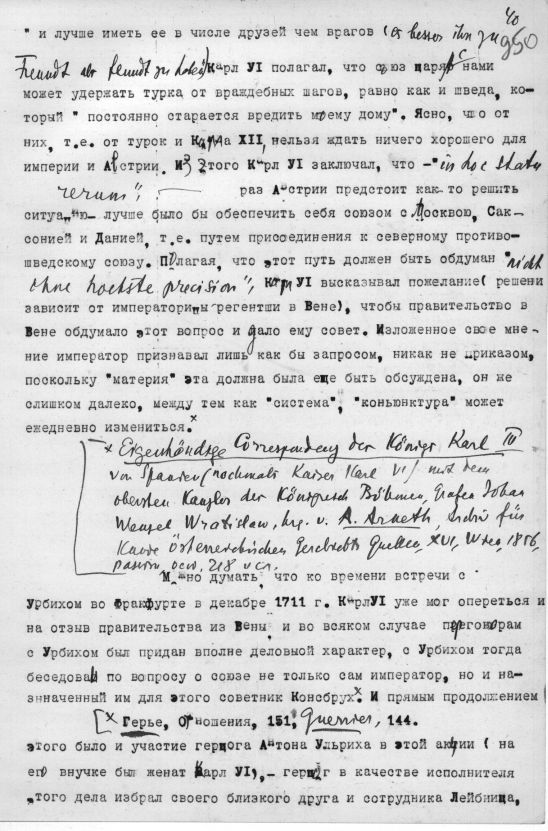 40
950
" и лучше иметь ее в числе друзей чем врагов (es besser ihn zu
Freundt als feundt zu haben) Карл УІ полагал, что союз царя с нами
может удержать турка от враждебных шагов, равно как и шведа, ко-
торый " постоянно старается вредить моему дому". Ясно, что от
них, т.е. от турок и Карла XII, нельзя ждать ничего хорошего для
империи и Австрии. Из этого Карл УІ заключал, что -"in hoc statu
rerum",
раз Австрии предстоит как-то решить
ситуацию- лучше было бы обеспечить себя союзом с Москвою, Сак-
сонией и Данией, т.е. путем присоединения к северному противо-
шведскому союзу. Полагая, что этот путь должен быть обдуман "nicht
ohne hoechste precision", Карл УІ высказывал пожелание( решени
зависит от императрицы регентши в Вене), чтобы правительство в
Вене обдумало этот вопрос и дало ему совет. Изложенное свое мне-
ние император признавал лишь как бы запросом, никак не приказом,
поскольку "материя" эта должна была еще быть обсуждена, он же
слишком далеко, между тем как "система", "коньюнктура" может
ежедневно измениться.x
x Eigenhändige Correspondenz der Königs Karl III
von Spanien (nochmals Kaiser Karl VI) mit dem
obersten Kanzler der Königreich Böhmen, Grafen Johan
Wenzel Wratislaw, hrg. v. A. Arneth, Archiv für
Kunde österreichischen Geschichts Quellen, XVI, Wien, 1856,
passim, 218
Можно думать, что ко времени встречи с
Урбихом во Франкфурте в декабре 1711 г. КарлУІ уже мог опереться и
на отзыв правительства из Вены, и во всяком случае переговорам
с Урбихом был придан вполне деловой характер, с Урбихом тогда
беседовал по вопросу о союзе не только сам император, но и на-
значенный им для этого советник Консбрух.x И прямым продолжением
[x Герье, Отношения, 151, Guerrier, 144.
этого было и участие герцога Антона Ульриха в этой акции ( на
его внучке был женат Карл УІ),- герцог в качестве исполнителя
этого дела избрал своего близкого друга и сотрудника Лейбница,